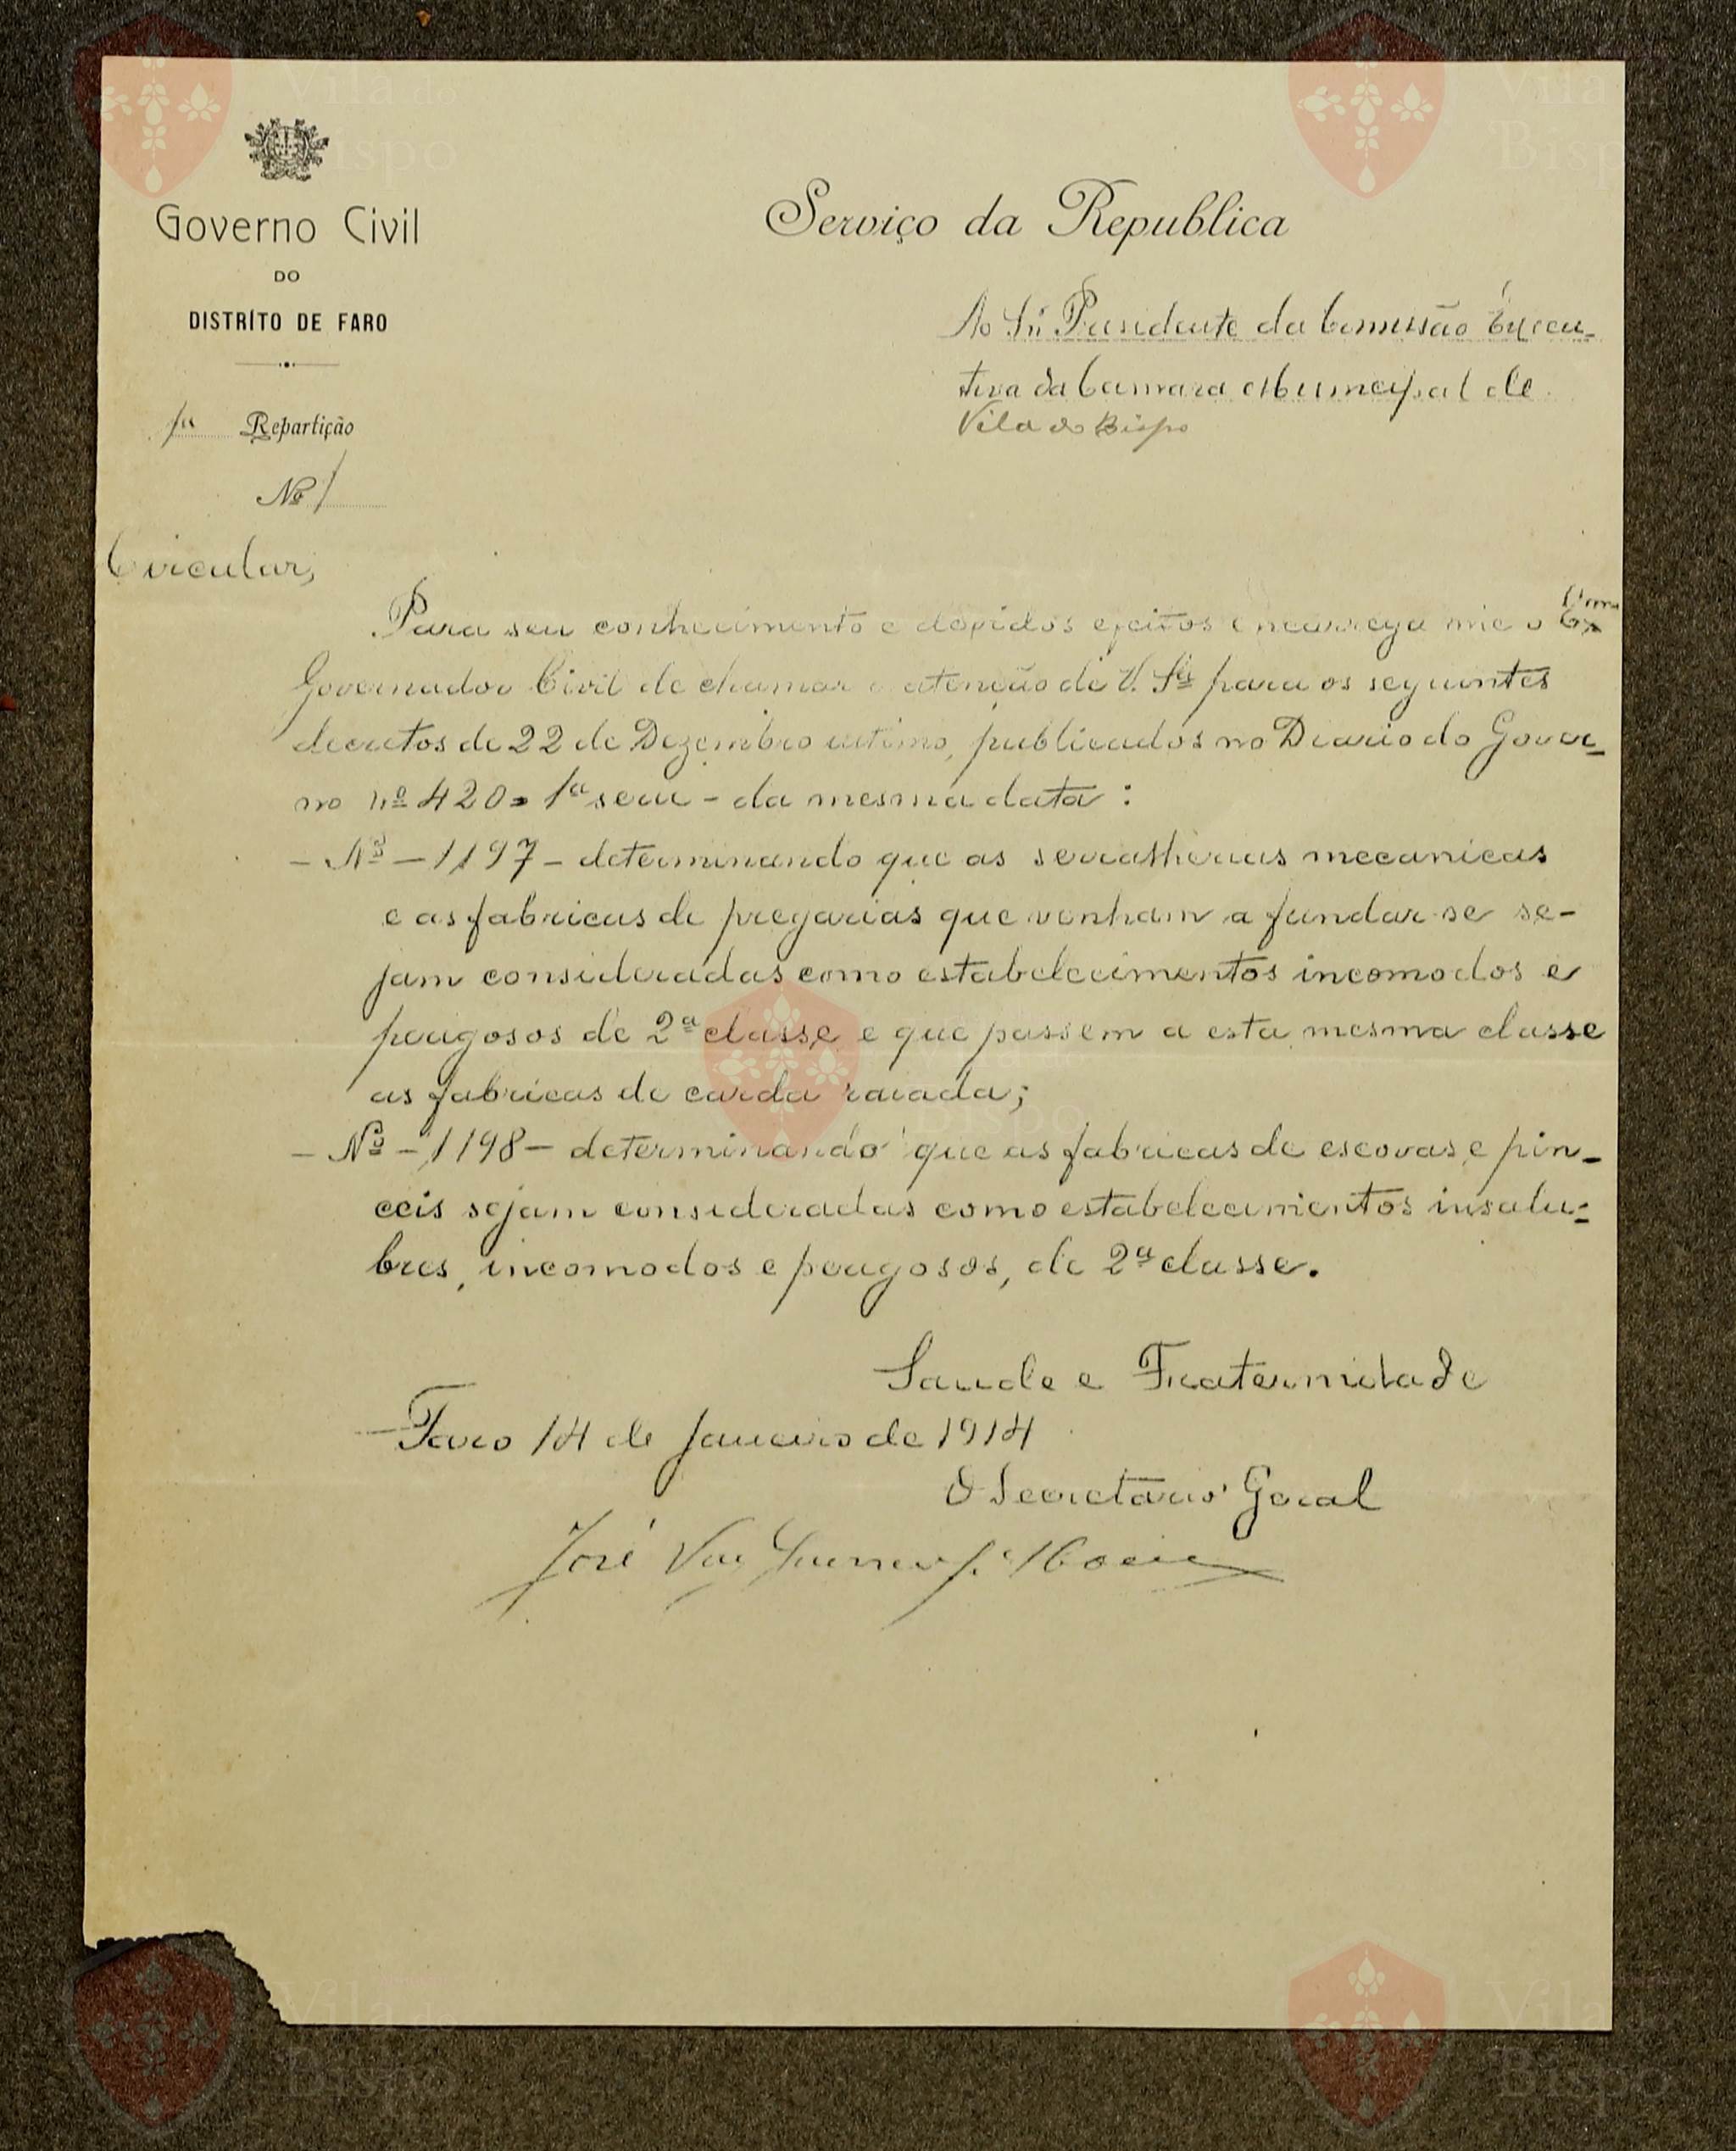 Governo Civil
DO
DISTRÍTO DE FARO
1ª Repartição
Nº 1
Serviço da Republica
Ao Snr Presidente da Comissão Execu-
tiva da Camara Municipal de
Vila do Bispo
Circular,
Para seu conhecimento e devidos efeitos encarrega me o Exmo
Governador Civil de chamar a atenção de V. Sª para os seguintes
decretos de 22 de Dezembro ultimo, publicados no Diario do Gover-
no nº 420 = 1ª serie - da mesma data:
- Nº - 1197 - determinando que as serralherias mecanicas
e as fabricas de pregarias que venham a fundar-se se-
jam consideradas como estabelecimentos incomodos e
perigosos de 2ª classe e que passem a esta mesma classe
as fabricas de carda
- Nº - 1198 - determinando que as fabricas de escovas e pin-
ceis sejam consideradas como estabelecimentos insalu-
bres, incomodos e perigosos, de 2ª classe.
Saude e Fraternidade
Faro 14 de Janeiro de 1914
O Secretario Geral
José Vaz
Vila do Bispo